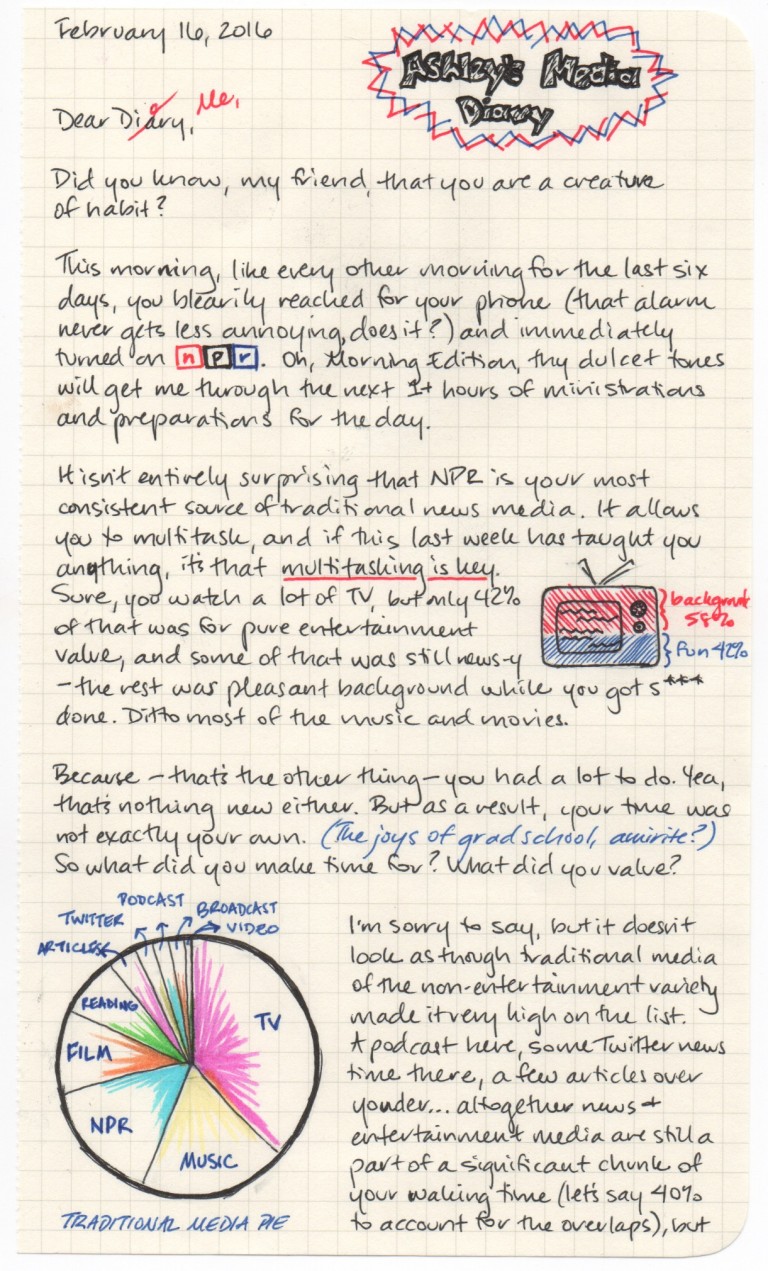 February 16, 2016
Ashley's Media
Diary
Dear Diary, Me,
Did you know, my friend, that you are a creature
of habit?
This morning, like every other morning for the last six
days, you blearily reached for your phone (that alarm
never gets less annoying, does it?) and immediately
turned on npr. Oh, Morning Edition, thy dulcet tones
will get me through the next 1+ hours of ministrations
and preparations for the day.
It isn't entirely surprising that NPR is your most
consistent source of traditional news media. It allows
you to multitask, and if this last week has taught you
anything, it's that multitasking is key.
Sure, you watch a lot of TV, but only 42%
of that was for pure entertainment
value, and some of that was still news-y
- the rest was pleasant background while you got s***
done. Ditto most of the music and movies.
background
58%
fun 42%
Because - that's the other thing - you had a lot to do. Yea,
that's nothing new either. But as a result, your time was
not exactly your own. (The joys of grad school, amirite?)
So what did you make time for? What did you value?
PODCAST
BROADCAST
TWITTER
VIDEO
ARTICLES
READING
TV
FILM
NPR
MUSIC
TRADITIONAL MEDIA PIE
I'm sorry to say, but it doesn't
look as though traditional media
of the non-entertainment variety
made it very high on the list.
A podcast here, some Twitter news
time there, a few articles over
yonder... altogether news +
entertainment media are still a
part of a significant chunk of
your waking time (let's say 40%
to account for the overlaps), but